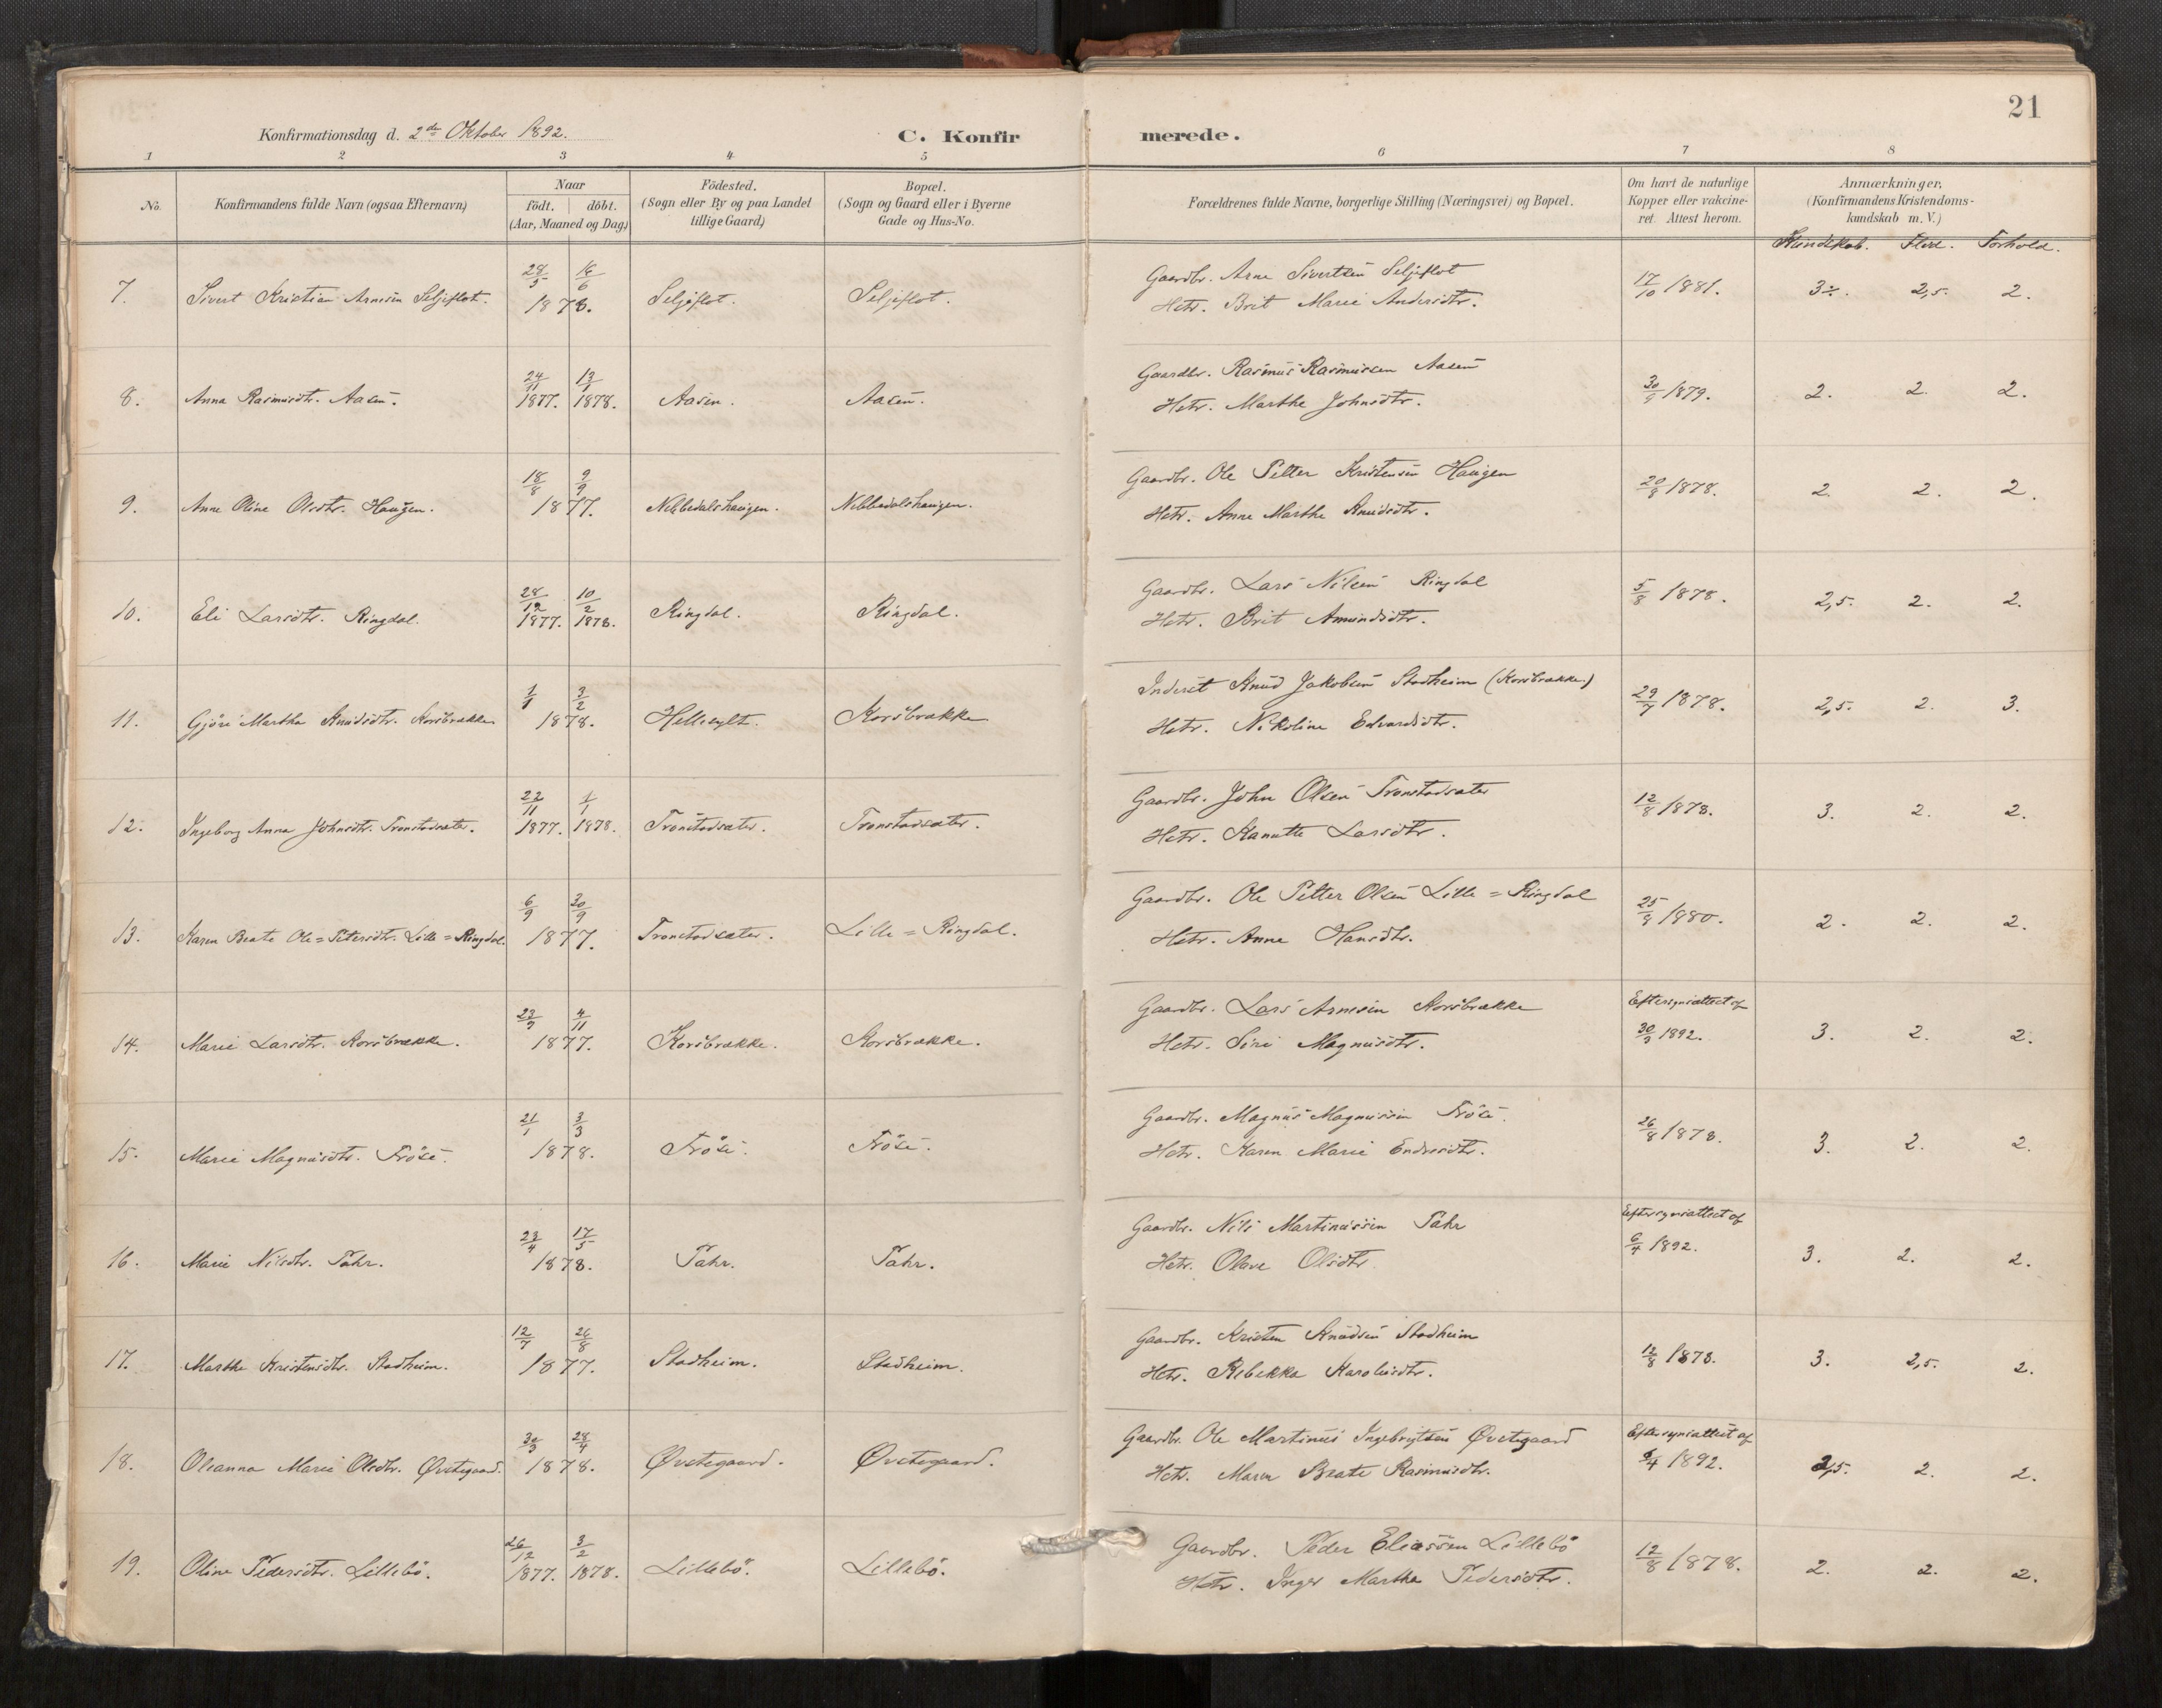 21
Konfirmationsdag d. 2den Oktober 1892.
C. Konfirmerede.
1 2 3 4 5 6 7 8
No.
Konfirmandens fulde Navn (ogsaa Efternavn)
Naar
födt. döbt.
(Aar, Maaned og Dag)
Födested.
(Sogn eller By og paa Landet
tillige Gaard)
Bopæl.
(Sogn og Gaard eller i Byerne
Gade og Hus-No.
Forældrenes fulde Navne, borgerlige Stilling (Næringsvei) og Bopæl.
Om havt de naturlige
Kopper eller vakcine-
ret. Attest herom.
Anmærkninger,
(Konfirmandens Kristendoms-
kundskab m. V.)
Kundskab. Flid. Forhold.
7. Sivert Kristian Arnesen Seljeflot. 28/5 16/6 1878. Seljeflot. Seljeflot. Gaardbr. Arne Sivertsen Seljeflot 17/10 1881. 3÷. 2,5. 2.
Hstr. Brit Marie Andersdtr.
8. Anna Rasmusdtr. Aasen. 24/11 1877. 13/1 1878. Aasen. Aasen. Gaardbr. Rasmus Rasmussen Aasen 30/9 1879. 2. 2. 2.
Hstr. Marthe Johnsdtr.
9. Anne Oline Olsdtr. Haugen. 18/8 9/9 1877. Nebbedalshaugen. Nebbedalshaugen. Gaardbr. Ole Petter Kristensen Haugen 20/8 1878. 2 2. 2.
Hstr. Anne Marthe Knudsdtr.
10. Eli Larsdtr. Ringdal. 28/12 1877. 10/2 1878. Ringdal. Ringdal. Gaardbr. Lars Nilsen Ringdal 5/8 1878. 2,5. 2. 2.
Hstr. Brit Amundsdtr.
11. Gjöre Martha Knudsdtr. Korsbrække. 1/1 3/2 1878. Hellesylt. Korsbrække Inderst Knud Jakobsen Stadheim (Korsbrække) 29/7 1878. 2,5. 2. 3.
Hstr. Nikoline Edvardsdtr.
12. Ingeborg Anna Johnsdtr. Tronstadsæter. 22/11 1877. 1/1 1878. Tronstadsæter. Tronstadsæter. Gaardbr. John Olsen Tronstadsæter 12/8 1878. 3. 2. 2.
Hstr. Kanutte Larsdtr.
13. Karen Beate Ole=Petersdtr. Lille=Ringdal. 6/9 30/9 1877. Tronstadsæter. Lille=Ringdal. Gaardbr. Ole Petter Olsen Lille=Ringdal 25/9 1880. 2. 2. 2.
Hstr. Anne Hansdtr.
14. Marie Larsdtr. Korsbrække. 23/9 4/11 1877. Korsbrække. Korsbrække. Gaardbr. Lars Arnesen Korsbrække Eftersynsattest af 30/9 1892. 3. 2. 2.
Hstr. Siri Magnusdtr.
15. Marie Magnusdtr. Fröse. 21/1 3/3 1878. Fröse. Fröse. Gaardbr. Magnus Magnussen Fröse. 26/8 1878. 3. 2. 2.
Hstr. Karen Marie Endresdtr.
16. Marie Nilsdtr. Tahr. 23/4 17/5 1878. Tahr. Tahr. Gaardbr. Nils Martinussen Tahr Eftersynsattest af 6/4 1892. 3. 2. 2.
Hstr. Olave Olsdtr.
17. Marthe Kristensdtr. Stadheim. 12/7 26/8 1877. Stadheim. Stadheim. Gaardbr. Kristen Knudsen Stadheim 12/8 1878. 3. 2,5. 2.
Hstr. Rebekka Karolusdtr.
18. Oleanna Marie Olsdtr. Øvstegaard. 30/3 28/4 1878. Øvstegaard. Øvstegaard. Gaardbr. Ole Martinus Ingebrigtsen Øvstegaard Eftersynsattest af 6/4 1892. 2,5. 2. 2.
Hstr. Maren Beate Rasmusdtr.
19. Oline Pedersdtr. Lillebö. 26/12 1877. 3/2 1878. Lillebö. Lillebö. Gaardbr. Peder Eliassen Lillebö 12/8 1878. 2. 2. 2.
Hstr. Inger Marthe Pedersdtr.